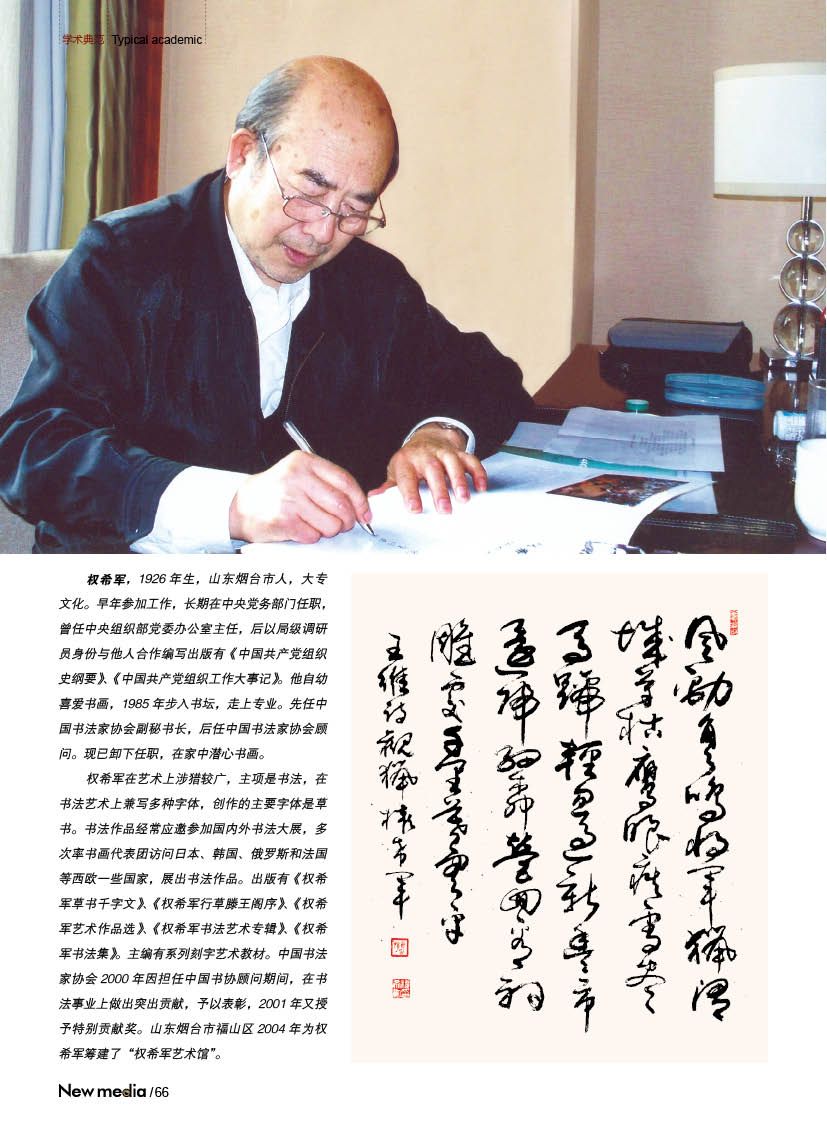 学术典范 Typical academic
权希军，1926 年生，山东烟台市人，大专
文化。早年参加工作，长期在中央党务部门任职，
曾任中央组织部党委办公室主任，后以局级调研
员身份与他人合作编写出版有《中国共产党组织
史纲要》、《中国共产党组织工作大事记》。他自幼
喜爱书画，1985 年步入书坛，走上专业。先任中
国书法家协会副秘书长，后任中国书法家协会顾
问。现已卸下任职，在家中潜心书画。
权希军在艺术上涉猎较广，主项是书法，在
书法艺术上兼写多种字体，创作的主要字体是草
书。书法作品经常应邀参加国内外书法大展，多
次率书画代表团访问日本、韩国、俄罗斯和法国
等西欧一些国家，展出书法作品。出版有《权希
军草书千字文》、《权希军行草滕王阁序》、《权希
军艺术作品选》、《权希军书法艺术专辑》、《权希
军书法集》。主编有系列刻字艺术教材。中国书法
家协会 2000 年因担任中国书协顾问期间，在书
法事业上做出突出贡献，予以表彰，2001 年又授
予特别贡献奖。山东烟台市福山区 2004 年为权
希军筹建了“权希军艺术馆”。
風勁角弓鳴將軍獵渭
城草枯鷹眼疾雪盡
馬蹄輕忽過新豐市
還歸細柳營回看射
雕處千里暮雲平
王維詩觀獵權希軍
New media /66